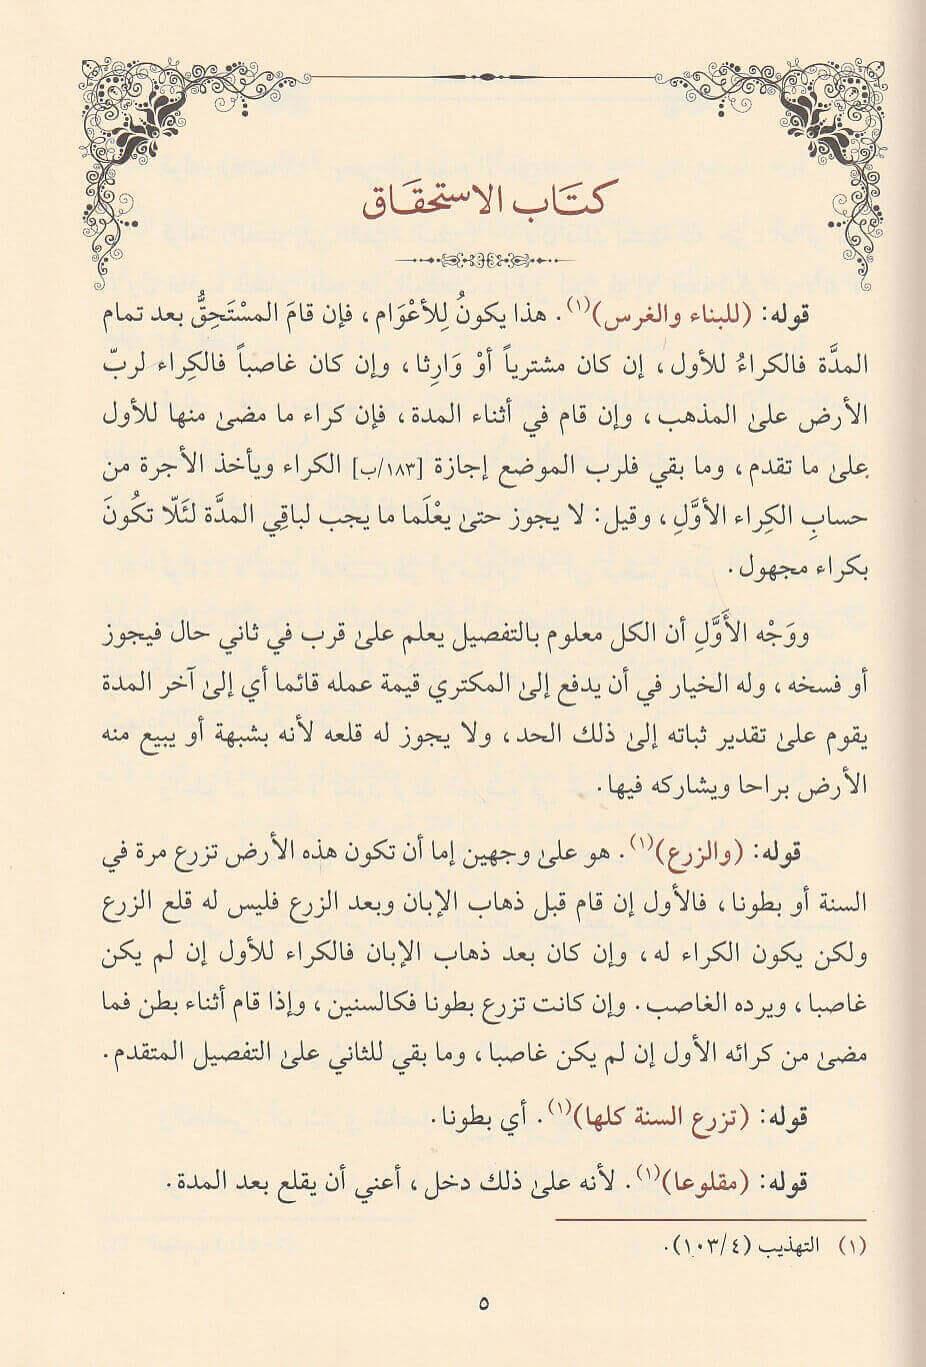 كتاب الاستحقاق
قوله: (للبناء والغرس)(١). هذا يكونُ لِلأعْوَام، فإن قامَ المسْتَحِقُّ بعد تمام
المدَّة فالكراءُ للأول، إن كان مشترياً أوْ وَارِثا، وإن كان غاصباً فالكِراء لربّ
الأرض علىٰ المذهب، وإن قام في أثناء المدة، فإن كراء ما مضىٰ منها للأول
علىٰ ما تقدم، وما بقي فلرب الموضع إجازة [١٨٣/ب] الكراء ويأخذ الأجرة من
حسابِ الكِراء الأوَّلِ، وقيل: لا يجوز حتىٰ يعْلَما ما يجب لباقِي المدَّة لئَلّا تكُونَ
بكراء مجهول.
ووَجْه الأَوَّلِ أن الكل معلوم بالتفصيل يعلم علىٰ قرب في ثاني حال فيجوز
أو فسخه، وله الخيار في أن يدفع إلىٰ المكتري قيمة عمله قائما أي إلىٰ آخر المدة
يقوم علىٰ تقدير ثباته إلىٰ ذلك الحد، ولا يجوز له قلعه لأنه بشبهة أو يبيع منه
الأرض براحا ويشاركه فيها.
قوله: (والزرع)(١). هو علىٰ وجهين إما أن تكون هذه الأرض تزرع مرة في
السنة أو بطونا، فالأول إن قام قبل ذهاب الإبان وبعد الزرع فليس له قلع الزرع
ولكن يكون الكراء له، وإن كان بعد ذهاب الإبان فالكراء للأول إن لم يكن
غاصبا، ويرده الغاصب. وإن كانت تزرع بطونا فكالسنين، وإذا قام أثناء بطن فما
مضىٰ من كرائه الأول إن لم يكن غاصبا، وما بقي للثاني علىٰ التفصيل المتقدم.
قوله: (تزرع السنة كلها)(١). أي بطونا.
قوله: (مقلوعا)(١). لأنه علىٰ ذلك دخل، أعني أن يقلع بعد المدة.
(١) التهذيب (١٠٣/٤).
٥